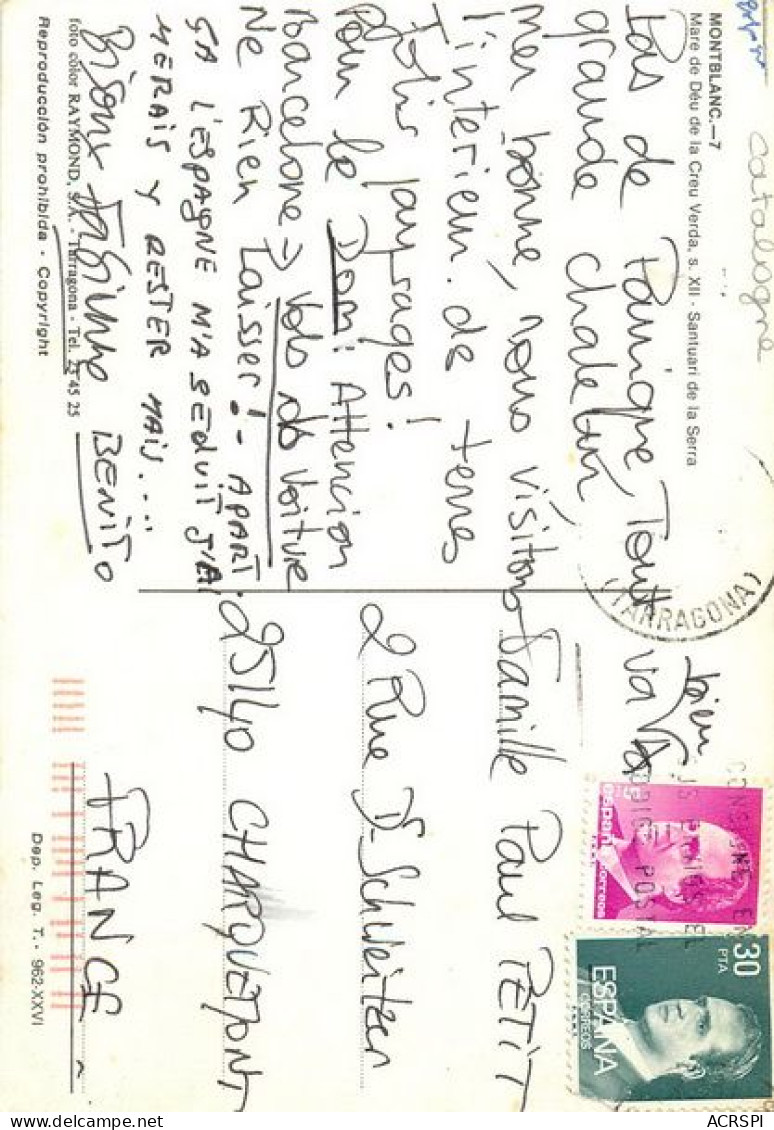 Catalogne
MONTBLANC.—7
Mare de Déu de la Creu Verda, s. XII - Santuari de la Serra
Pas de Panique Tout va bien
grande chaleur
mer bonne, nous visitons
l'interieur de terres
Jolis paysages!
Pour le Dom: Attencion
Barcelone → Vols de Voiture
Ne Rien Laisser! - APART
ÇA L'ESPAGNE M'A SEDUIT J'AI
MERAIS Y RESTER MAIS....
Bisoux BENITO
foto color RAYMOND, S.A. - Tarragona - Tel. 23 45 25
Reproducción prohibida - Copyright
(TARRAGONA)
CONSIGNE EN
SUS ENVIOS EL
CODIGO POSTAL
5 PTA
españa
correos
30
PTA
ESPAÑA
CORREOS
Famille Paul PETIT
2 Rue Dr Schweitzer
25140 CHARQUEMONT
FRANCE
Dep. Leg. T. - 962-XXVI
ACRSPI